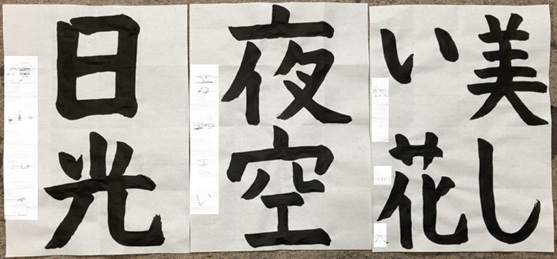 美し
い花
夜空
日光